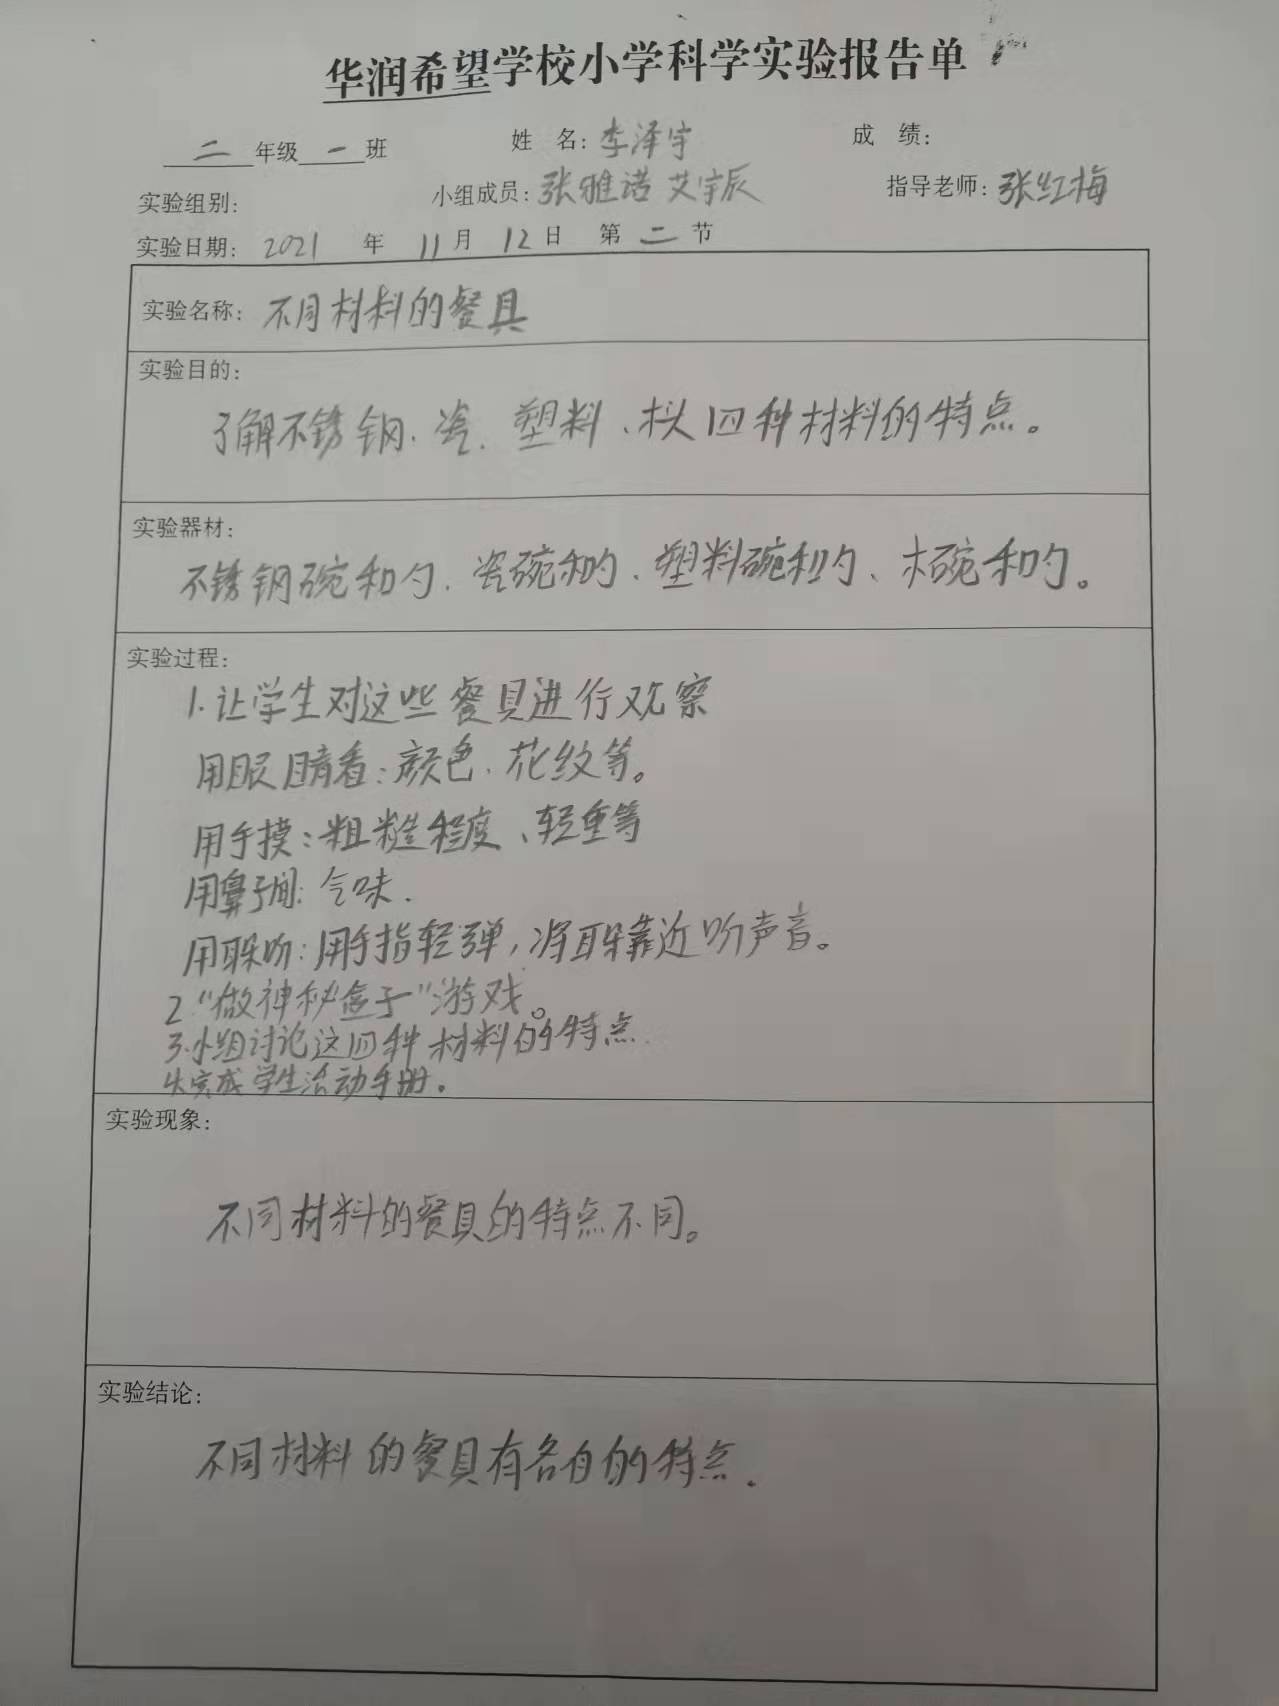 华润希望学校小学科学实验报告单
二年级一班 姓 名：李泽宇 成 绩：
实验组别： 小组成员：张雅诺 艾宇辰 指导老师：张红梅
实验日期： 2021 年 11月 12日 第二节
实验名称：不同材料的餐具
实验目的：
了解不锈钢、瓷、塑料、木头四种材料的特点。
实验器材：
不锈钢碗和勺、瓷碗和勺、塑料碗和勺、木碗和勺。
实验过程：
1.让学生对这些餐具进行观察
用眼睛看：颜色、花纹等。
用手摸：粗糙程度、轻重等
用鼻子闻：气味.
用耳朵听：用手指轻弹，将耳朵靠近听声音。
2.“做神秘盒子”游戏。
3.小组讨论这四种材料的特点.
4.完成学生活动手册.
实验现象：
不同材料的餐具的特点不同。
实验结论：
不同材料的餐具有各自的特点.